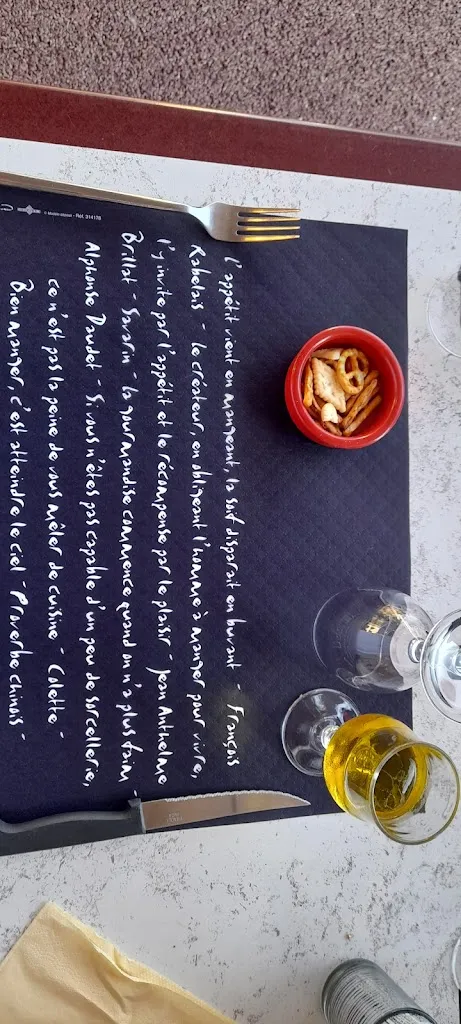 L'appétit vient en mangeant, la soif disparait en buvant - François
Rabelais - Le créateur, en obligeant l'homme à manger pour vivre,
l'y invite par l'appétit et le récompense par le plaisir - Jean Anthelme
Brillat - Savarin - la gourmandise commence quand on n'a plus faim -
Alphonse Daudet - Si vous n'êtes pas capable d'un peu de sorcellerie,
ce n'est pas la peine de vous mêler de cuisine - Colette -
Bien manger, c'est atteindre le ciel - Proverbe chinois -
Réf. 314178